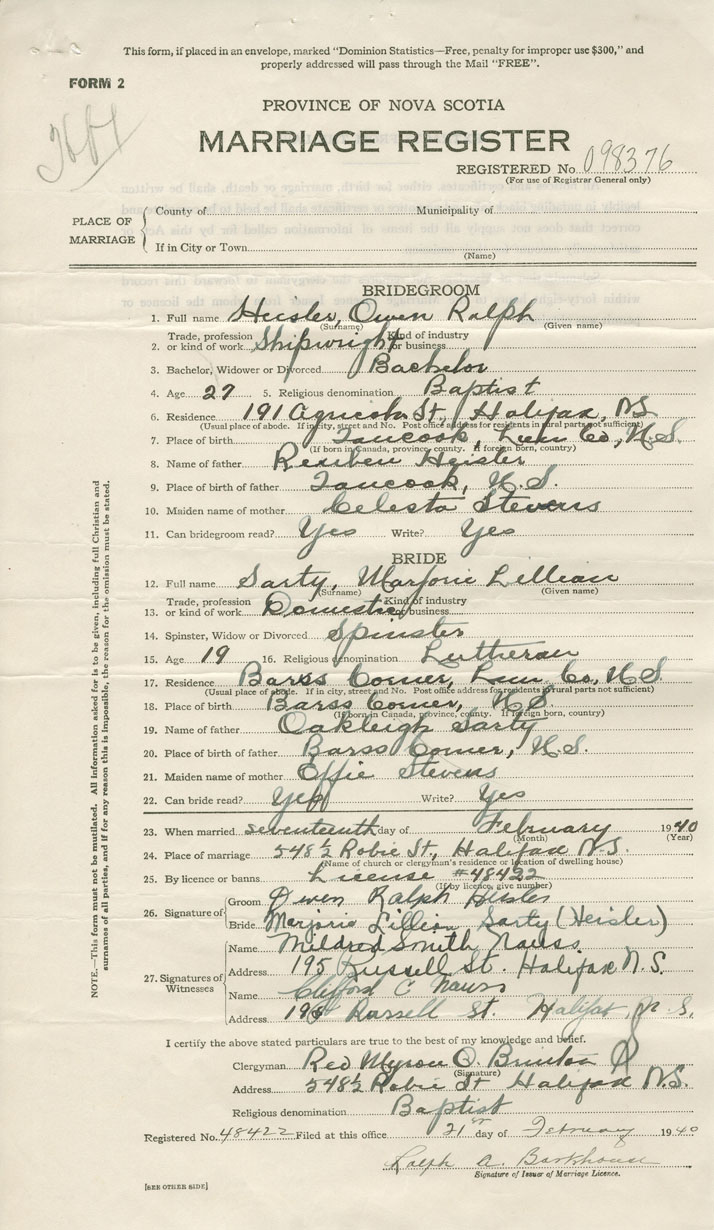 This form, if placed in an envelope, marked "Dominion Statistics—Free, penalty for improper use $300," and
properly addressed will pass through the Mail "FREE".
FORM 2
PROVINCE OF NOVA SCOTIA
MARRIAGE REGISTER
REGISTERED No. 098376
(For use of Registrar General only)
PLACE OF MARRIAGE
County of Municipality of
If in City or Town
(Name)
BRIDEGROOM
1. Full name Heisler, Owen Ralph
(Surname) (Given name)
2. Trade, profession or kind of work Shipwright Kind of industry or business
3. Bachelor, Widower or Divorced Bachelor
4. Age 27 5. Religious denomination Baptist
6. Residence 191 Agricola St., Halifax, N.S.
(Usual place of abode. If in city, street and No. Post office address for residents in rural parts not sufficient)
7. Place of birth Tancook, Lun. Co., N.S.
(If born in Canada, province, county. If foreign born, country)
8. Name of father Reuben Heisler
9. Place of birth of father Tancook, N.S.
10. Maiden name of mother Celesta Stevens
11. Can bridegroom read? Yes Write? Yes
BRIDE
12. Full name Sarty, Marjorie Lillian
(Surname) (Given name)
13. Trade, profession or kind of work Domestic Kind of industry or business
14. Spinster, Widow or Divorced Spinster
15. Age 19 16. Religious denomination Lutheran
17. Residence Barss Corner, Lun. Co., N.S.
(Usual place of abode. If in city, street and No. Post office address for residents in rural parts not sufficient)
18. Place of birth Barss Corner, N.S.
(If born in Canada, province, county. If foreign born, country)
19. Name of father Oakleigh Sarty
20. Place of birth of father Barss Corner, N.S.
21. Maiden name of mother Effie Stevens
22. Can bride read? Yes Write? Yes
23. When married seventeenth day of February 1940
(Month) (Year)
24. Place of marriage 548½ Robie St., Halifax N.S.
(Name of church or clergyman's residence or location of dwelling house)
25. By licence or banns License #48422
(If by licence, give number)
26. Signature of Groom Owen Ralph Heisler
Bride Marjorie Lillian Sarty (Heisler)
27. Signatures of Witnesses
Name Mildred Smith Nauss
Address 195 Russell St. Halifax N.S.
Name Clifford C Nauss
Address 195 Russell St. Halifax, N.S.
I certify the above stated particulars are true to the best of my knowledge and belief.
Clergyman Rev Myron O. Brinton
(Signature)
Address 548½ Robie St Halifax N.S.
Religious denomination Baptist
Registered No. 48422 Filed at this office 21st day of February 1940
Ralph A. Barkhouse
Signature of Issuer of Marriage Licence.
[SEE OTHER SIDE]
NOTE.—This form must not be mutilated. All information asked for is to be given, including full Christian and
surnames of all parties, and if for any reason this is impossible, the reason for the omission must be stated.